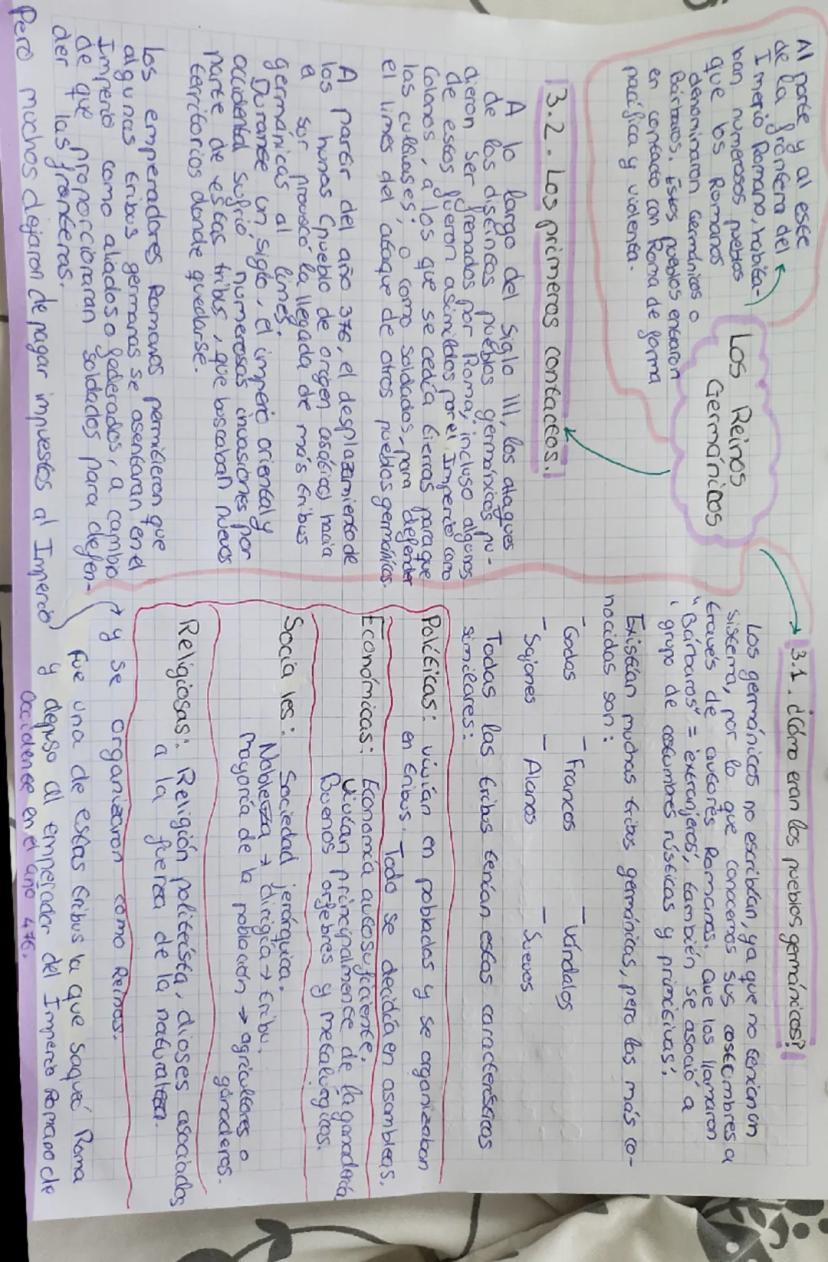 Los Reinos
Germánicos
Al norte y al este
de la frontera del
Imperio Romano, habita-
ban numerosos pueblos
que los Romanos
denominaron Germánicos o
Bárbaros. Estos pueblos entraron
en contacto con Roma de forma
pacífica y violenta.
3.1. ¿Cómo eran los pueblos germánicos?
Los germánicos no escribían, ya que no tenían un
sistema, por lo que conocemos sus costumbres a
través de autores Romanos, que los llamaron
"Bárbaros" = 'extranjeros', también se asoció a
'grupo de costumbres rústicas y primitivas'.
Existían muchas tribus germánicas, pero las más co-
nocidas son:
- Godos - Francos - Vándalos
- Sajones - Alanos - Suevos
Todas las tribus tenían estas características
similares:
Políticas: vivían en poblados y se organizaban
en tribus. Todo se decidía en asambleas.
Económicas: Economía autosuficiente.
Vivían principalmente de la ganadería
Buenos orfebres y metalúrgicos.
Sociales: Sociedad jerárquica.
Nobleza → dirigía → tribu.
Mayoría de la población → agricultores o
ganaderos.
Religiosas: Religión politeísta, dioses asociados
a la fuerza de la naturaleza.
3.2. Los primeros contactos.
A lo largo del siglo III, los ataques
de los distintos pueblos germánicos pu-
dieron ser frenados por Roma; incluso algunos
de estos fueron asimilados por el Imperio como
colonos, a los que se cedía tierras para que
las cultivases; o como soldados, para defender
el limes del ataque de otros pueblos germánicos.
A partir del año 376, el desplazamiento de
los hunos (pueblo de origen asiático) hacia
el sur provocó la llegada de más tribus
germánicas al limes.
Durante un siglo, el imperio oriental y
occidental sufrió numerosas invasiones por
parte de estas tribus, que buscaban nuevos
territorios donde quedarse.
Los emperadores Romanos permitieron que
algunas tribus germanas se asentaran en el
Imperio como aliados o federados, a cambio
de que proporcionaran soldados para defen-
der las fronteras.
Pero muchos dejaron de pagar impuestos al Imperio
y se organizaron como Reinos.
Fue una de estas tribus la que saqueó Roma
y depuso al emperador del Imperio Romano de
Occidente en el año 476.